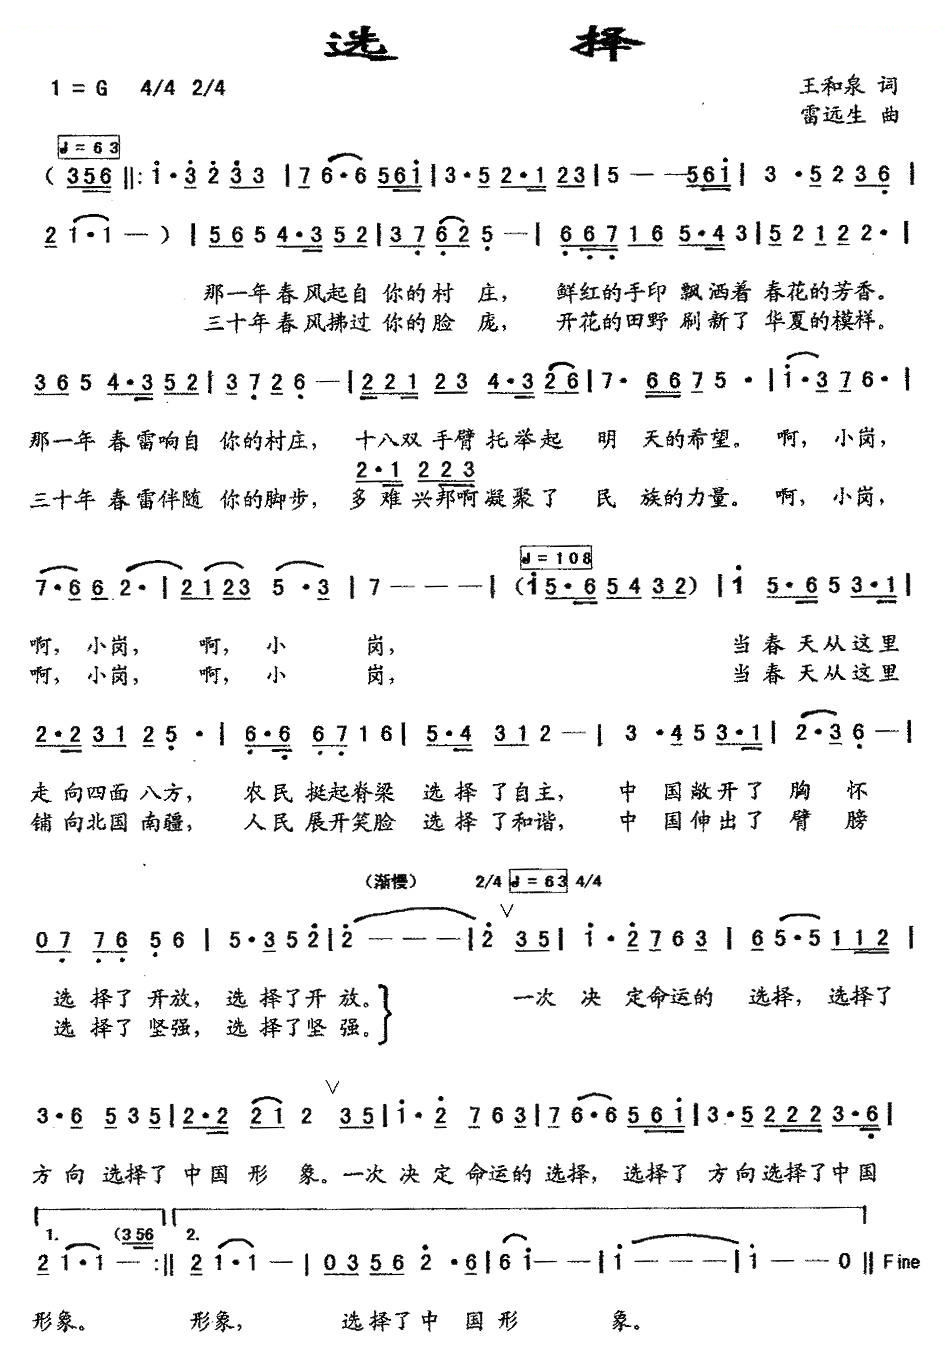 选 择
1 = G 4/4 2/4
王和泉 词
雷远生 曲
♩= 63
( 3 5 6 ‖: i · 3 2 3 3 | 7 6 · 6 5 6 i | 3 · 5 2 · 1 2 3 | 5 — — 5 6 i | 3 · 5 2 3 6 |
2 1 · 1 — ) | 5 6 5 4 · 3 5 2 | 3 7 6 2 5 — | 6 6 7 1 6 5 · 4 3 | 5 2 1 2 2 · |
那一年春风起自 你的村 庄, 鲜红的手印 飘洒着 春花的芳香。
三十年春风拂过 你的脸 庞, 开花的田野 刷新了 华夏的模样。
3 6 5 4 · 3 5 2 | 3 7 2 6 — | 2 2 1 2 3 4 · 3 2 6 | 7 · 6 6 7 5 · | i · 3 7 6 · |
那一年 春雷响自 你的村庄, 十八双 手臂 托举起 明 天的希望。 啊, 小岗,
2 · 1 2 2 3
三十年 春雷伴随 你的脚步, 多 难 兴邦啊凝聚了 民 族的力量。 啊, 小岗,
♩= 108
7 · 6 6 2 · | 2 1 2 3 5 · 3 | 7 — — — | ( i 5 · 6 5 4 3 2 ) | i 5 · 6 5 3 · 1 |
啊, 小岗, 啊, 小 岗, 当 春 天从这里
啊, 小岗, 啊, 小 岗, 当 春 天从这里
2 · 2 3 1 2 5 · | 6 · 6 6 7 1 6 | 5 · 4 3 1 2 — | 3 · 4 5 3 · 1 | 2 · 3 6 — |
走 向四面 八方, 农民 挺起脊梁 选择 了自主, 中 国敞开了 胸 怀
铺 向北国 南疆, 人民 展开笑脸 选择 了和谐, 中 国伸出了 臂 膀
(渐慢) 2/4 ♩= 63 4/4
0 7 7 6 5 6 | 5 · 3 5 2 | 2 — — — | 2 ∨ 3 5 | i · 2 7 6 3 | 6 5 · 5 1 1 2 |
选 择了 开放, 选 择了开 放。 一次 决 定命运的 选择, 选择了
选 择了 坚强, 选 择了坚 强。
3 · 6 5 3 5 | 2 · 2 2 1 2 ∨ 3 5 | i · 2 7 6 3 | 7 6 · 6 5 6 i | 3 · 5 2 2 2 3 · 6 |
方 向 选择了 中 国 形 象。一次 决 定 命运的 选择, 选择了 方向选择了中国
1. ( 3 5 6 2.
2 1 · 1 — :‖ 2 1 · 1 — | 0 3 5 6 2 · 6 | 6 i — — | i — — — | i — — 0 ‖ Fine
形象。 形象, 选择了中 国 形 象。